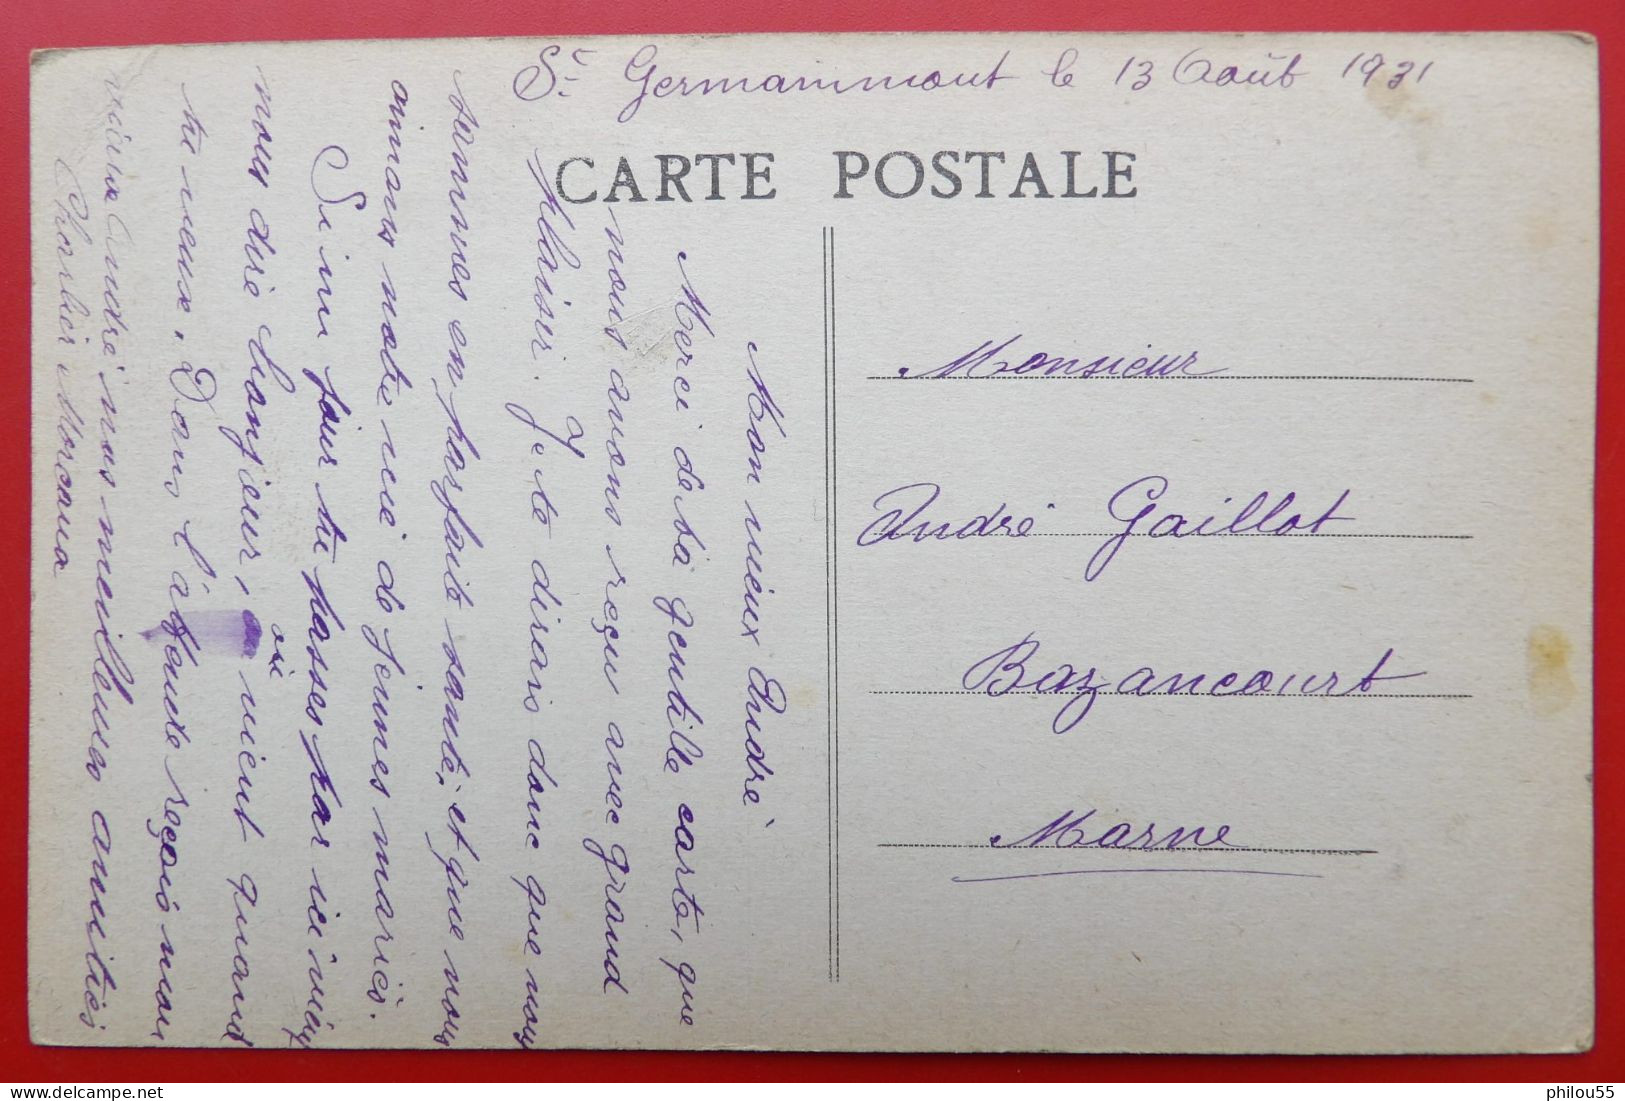 St Germainmont le 13 Août 1931
CARTE POSTALE
Mon vieux André
Merci de ta gentille carte, que
nous avons reçu avec grand
plaisir. Je te dirais donc que nous
sommes en parfaite santé, et que nous
aimons notre vie de jeunes mariés.
Si un jour tu passes par ici viens
nous dire bonjour, oui vient quand
tu veux. Dans l'attente reçois mon
vieux André nos meilleures amitiés
Charlier Morcana
Monsieur
André Gaillot
Bazancourt
Marne
philou55